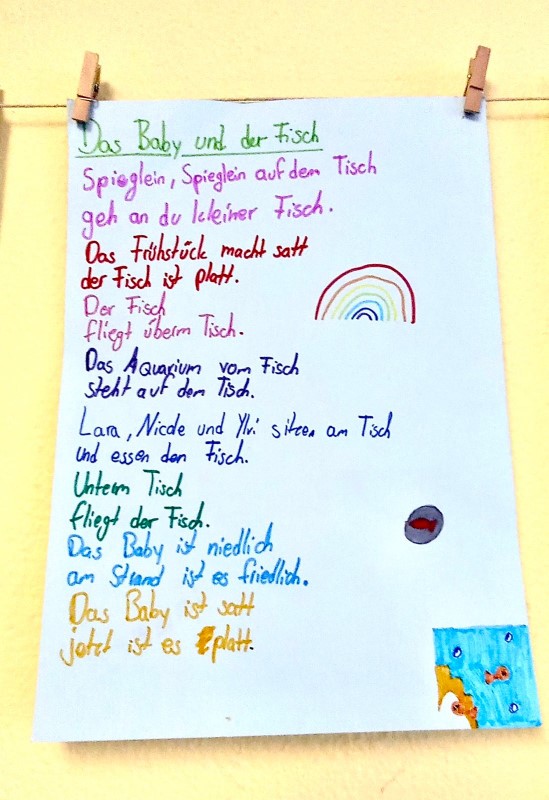 Das Baby und der Fisch
Spieglein, Spieglein auf dem Tisch
geh an du kleiner Fisch.
Das Frühstück macht satt
der Fisch ist platt.
Der Fisch
fliegt überm Tisch.
Das Aquarium vom Fisch
steht auf dem Tisch.
Lara, Nicole und Ylvi sitzen am Tisch
und essen den Fisch.
Unterm Tisch
fliegt der Fisch.
Das Baby ist niedlich
am Strand ist es friedlich.
Das Baby ist satt
jetzt ist es platt.